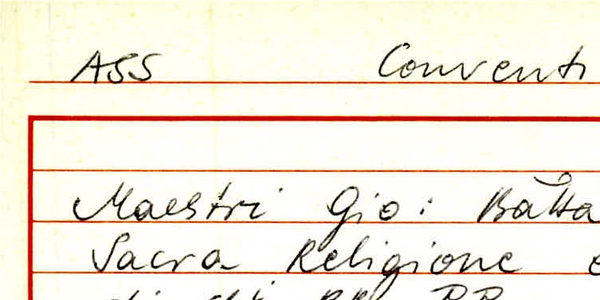 ASS Conventi
Maestri Gio: Bãtta
Sacra Religione e